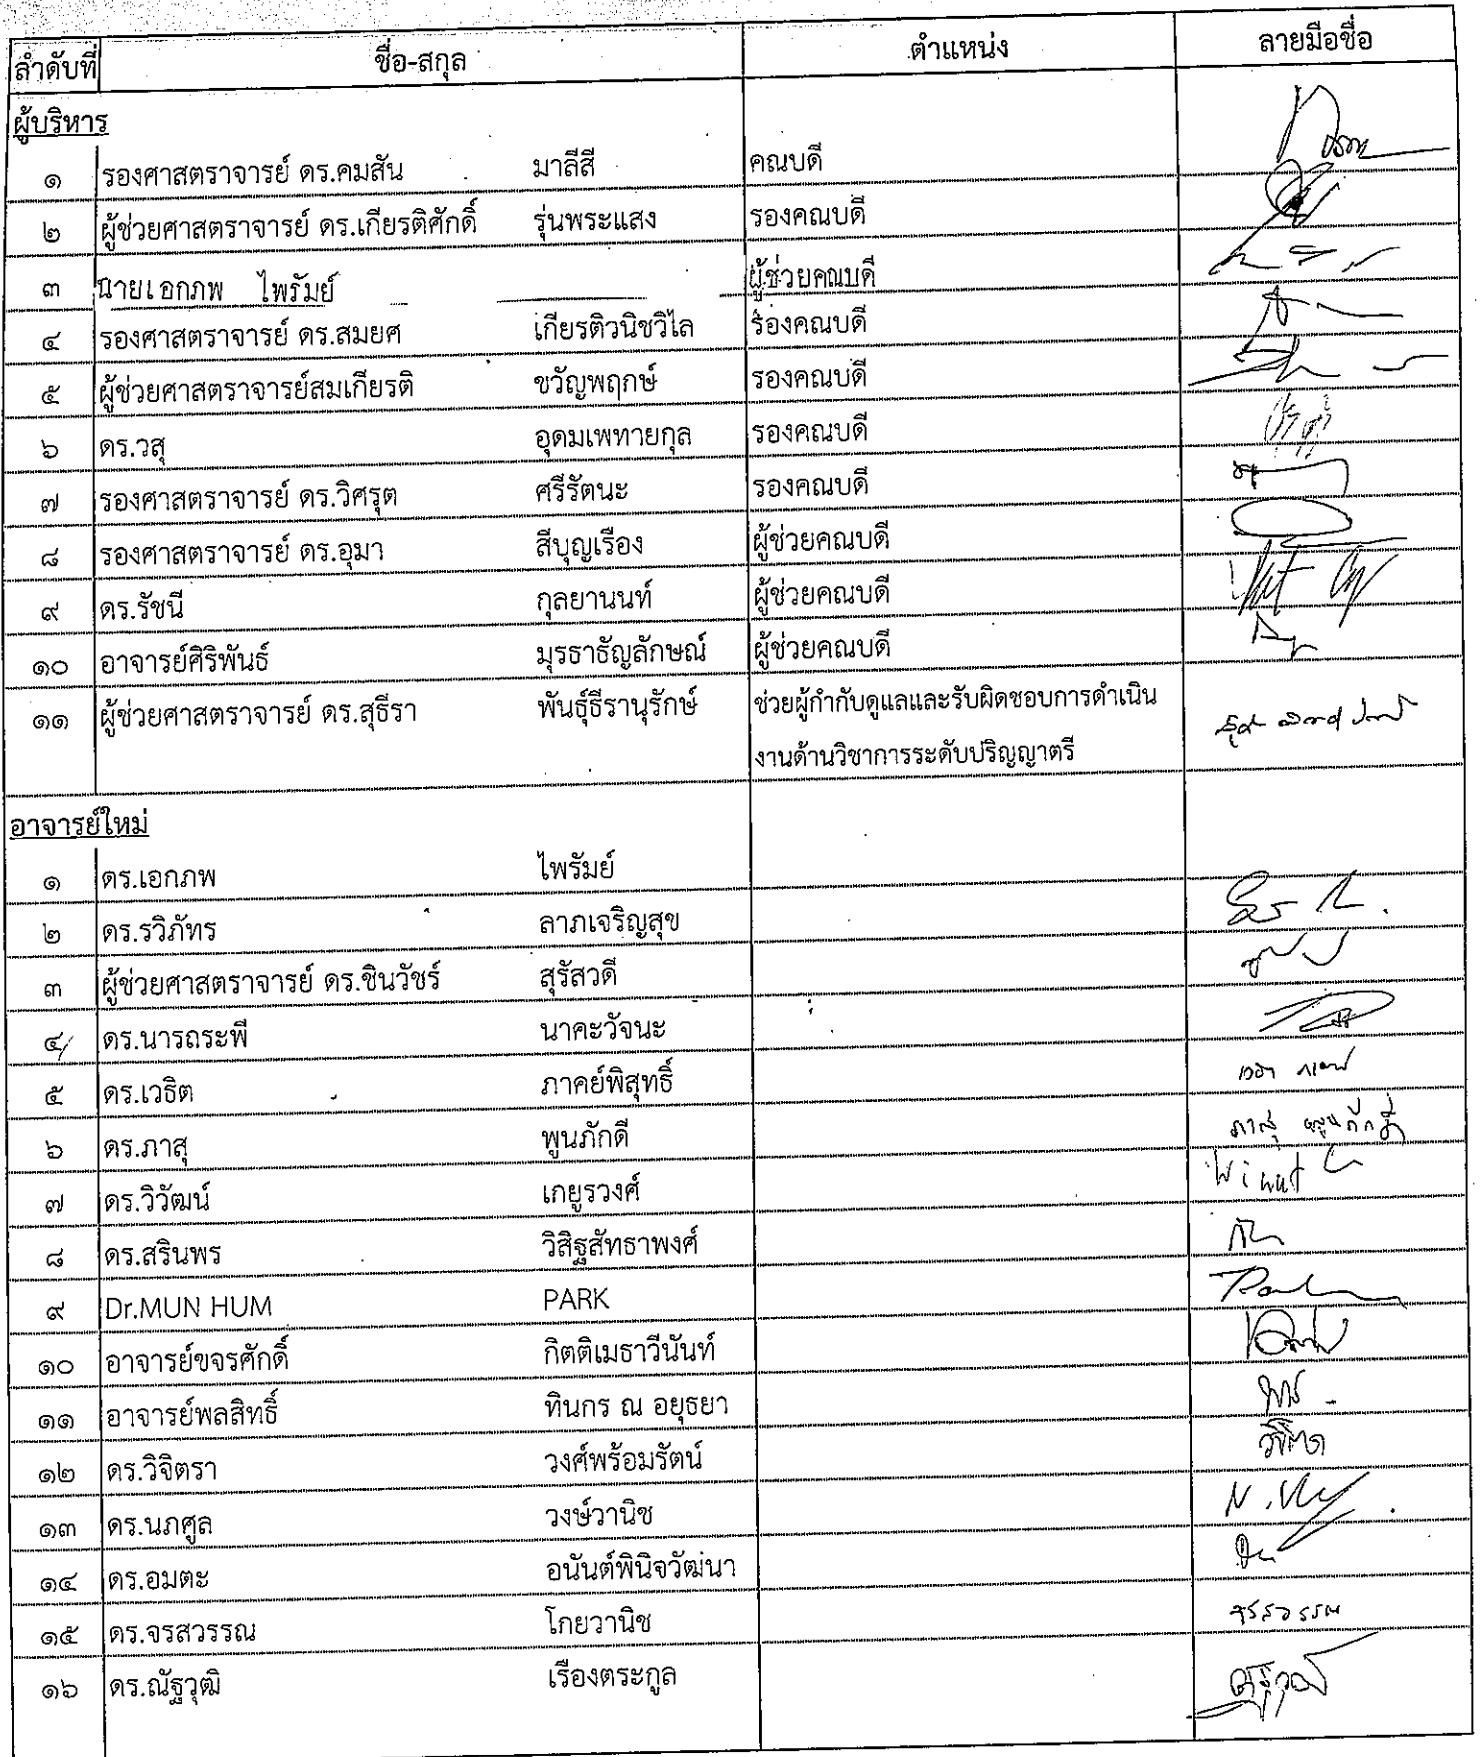 ลำดับที่ ชื่อ-สกุล ตำแหน่ง ลายมือชื่อ
ผู้บริหาร
๑ รองศาสตราจารย์ ดร.คมสัน มาลีสี คณบดี
๒ ผู้ช่วยศาสตราจารย์ ดร.เกียรติศักดิ์ รุ่นพระแสง รองคณบดี
๓ นายเอกภพ ไพรัมย์ ผู้ช่วยคณบดี
๔ รองศาสตราจารย์ ดร.สมยศ เกียรติวนิชวิไล รองคณบดี
๕ ผู้ช่วยศาสตราจารย์สมเกียรติ ขวัญพฤกษ์ รองคณบดี
๖ ดร.วสุ อุดมเพทายกุล รองคณบดี
๗ รองศาสตราจารย์ ดร.วิศรุต ศรีรัตนะ รองคณบดี
๘ รองศาสตราจารย์ ดร.อุมา สีบุญเรือง ผู้ช่วยคณบดี
๙ ดร.รัชนี กุลยานนท์ ผู้ช่วยคณบดี
๑๐ อาจารย์ศิริพันธ์ มุรธาธัญลักษณ์ ผู้ช่วยคณบดี
๑๑ ผู้ช่วยศาสตราจารย์ ดร.สุธีรา พันธุ์ธีรานุรักษ์ ช่วยผู้กำกับดูแลและรับผิดชอบการดำเนิน
งานด้านวิชาการระดับปริญญาตรี
อาจารย์ใหม่
๑ ดร.เอกภพ ไพรัมย์
๒ ดร.รวิภัทร ลาภเจริญสุข
๓ ผู้ช่วยศาสตราจารย์ ดร.ชินวัชร์ สุรัสวดี
๔ ดร.นารถระพี นาคะวัจนะ
๕ ดร.เวธิต ภาคย์พิสุทธิ์
๖ ดร.ภาสุ พูนภักดี ภาสุ พูนภักดี
๗ ดร.วิวัฒน์ เกยูรวงศ์
๘ ดร.สรินพร วิสิฐสัทธาพงศ์
๙ Dr.MUN HUM PARK
๑๐ อาจารย์ขจรศักดิ์ กิตติเมธาวีนันท์
๑๑ อาจารย์พลสิทธิ์ ทินกร ณ อยุธยา
๑๒ ดร.วิจิตรา วงศ์พร้อมรัตน์
๑๓ ดร.นภศูล วงษ์วานิช
๑๔ ดร.อมตะ อนันต์พินิจวัฒนา
๑๕ ดร.จรสวรรณ โกยวานิช จรสวรรณ
๑๖ ดร.ณัฐวุฒิ เรืองตระกูล